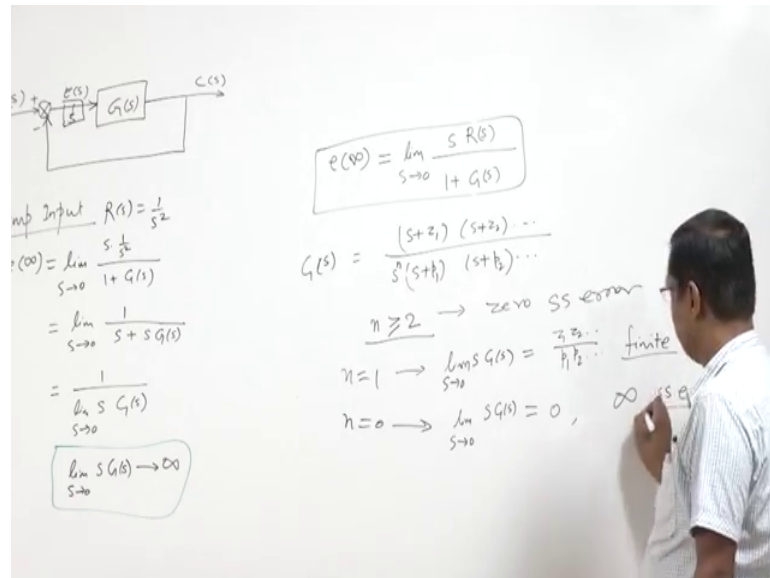 (s) + E(s) G(s) C(s)
-
mp Input R(s) = 1/s²
e(∞) = lim s→0 s·1/s² / 1 + G(s)
= lim s→0 1 / s + sG(s)
= 1 / lim s→0 s G(s)
lim s→0 s G(s) → ∞
e(∞) = lim s→0 s R(s) / 1 + G(s)
G(s) = (s+z₁) (s+z₂)... / sⁿ(s+p₁) (s+p₂)...
n ≥ 2 → zero ss error
n=1 → lim s→0 s G(s) = z₁ z₂... / p₁ p₂... finite
n=0 → lim s→0 sG(s) = 0, ∞ ss e